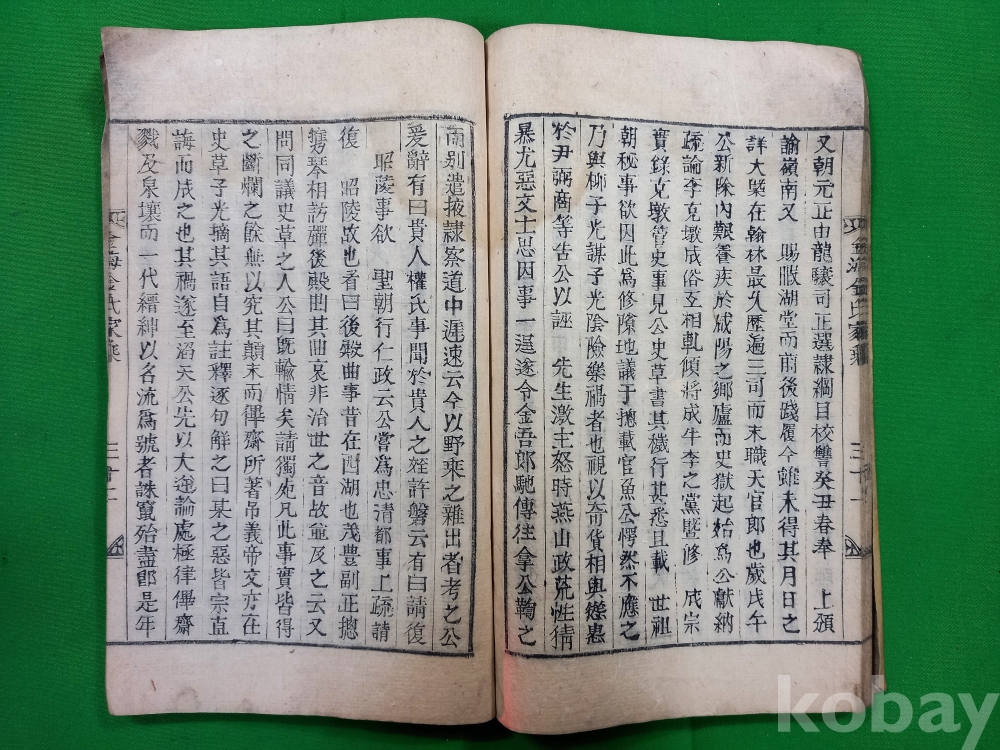 又朝元正由龍驤司正選隷綱目校讐癸丑春奉 上頒
諭嶺南又 賜暇湖堂而前後踐履今雖未得其月日之
詳大槩在翰林最久歷遍三司而末職天官郎也歲戊午
公新除內艱養疾於咸陽之鄉廬而史獄起始爲公獻納
疏論李克墩成俗互相軋傾將成牛李之黨曁修 成宗
實錄克墩管史事見公史草書其穢行甚悉且載 世祖
朝秘事欲因此爲修隙地議于摠載官魚公愕然不應之
乃與柳子光謀子光陰險樂禍者也視以奇貨相與慫惥
於尹弼商等告公以誣 先生激主怒時燕山政荒性猜
暴尤惡文士思因事一逞遂令金吾郎馳傳往拿公鞫之
南別遣掖隷察道中遲速云今以野乘之雜出者考之公
爰辭有曰貴人權氏事聞於貴人之姪許磐云有曰請復
昭陵事欲 聖朝行仁政云公嘗爲忠淸都事上疏請
復 昭陵故也者曰後殿曲事昔在西湖也茂豊副正摠
携琴相訪彈後殿曲其曲哀非治世之音故並及之云又
問同議史草之人公曰旣輸情矣請獨死凡此事實皆得
之斷爛之餘無以究其顚末而畢齋所著吊義帝文亦在
史草子光摘其語自爲註釋逐句解之曰某之惡皆宗直
誨而成之也其禍遂至滔天公先以大逆論處極律畢齋
戮及泉壤而一代縉紳以名流爲號者誅竄殆盡卽是年
金海金氏家乘
金海金氏家乘